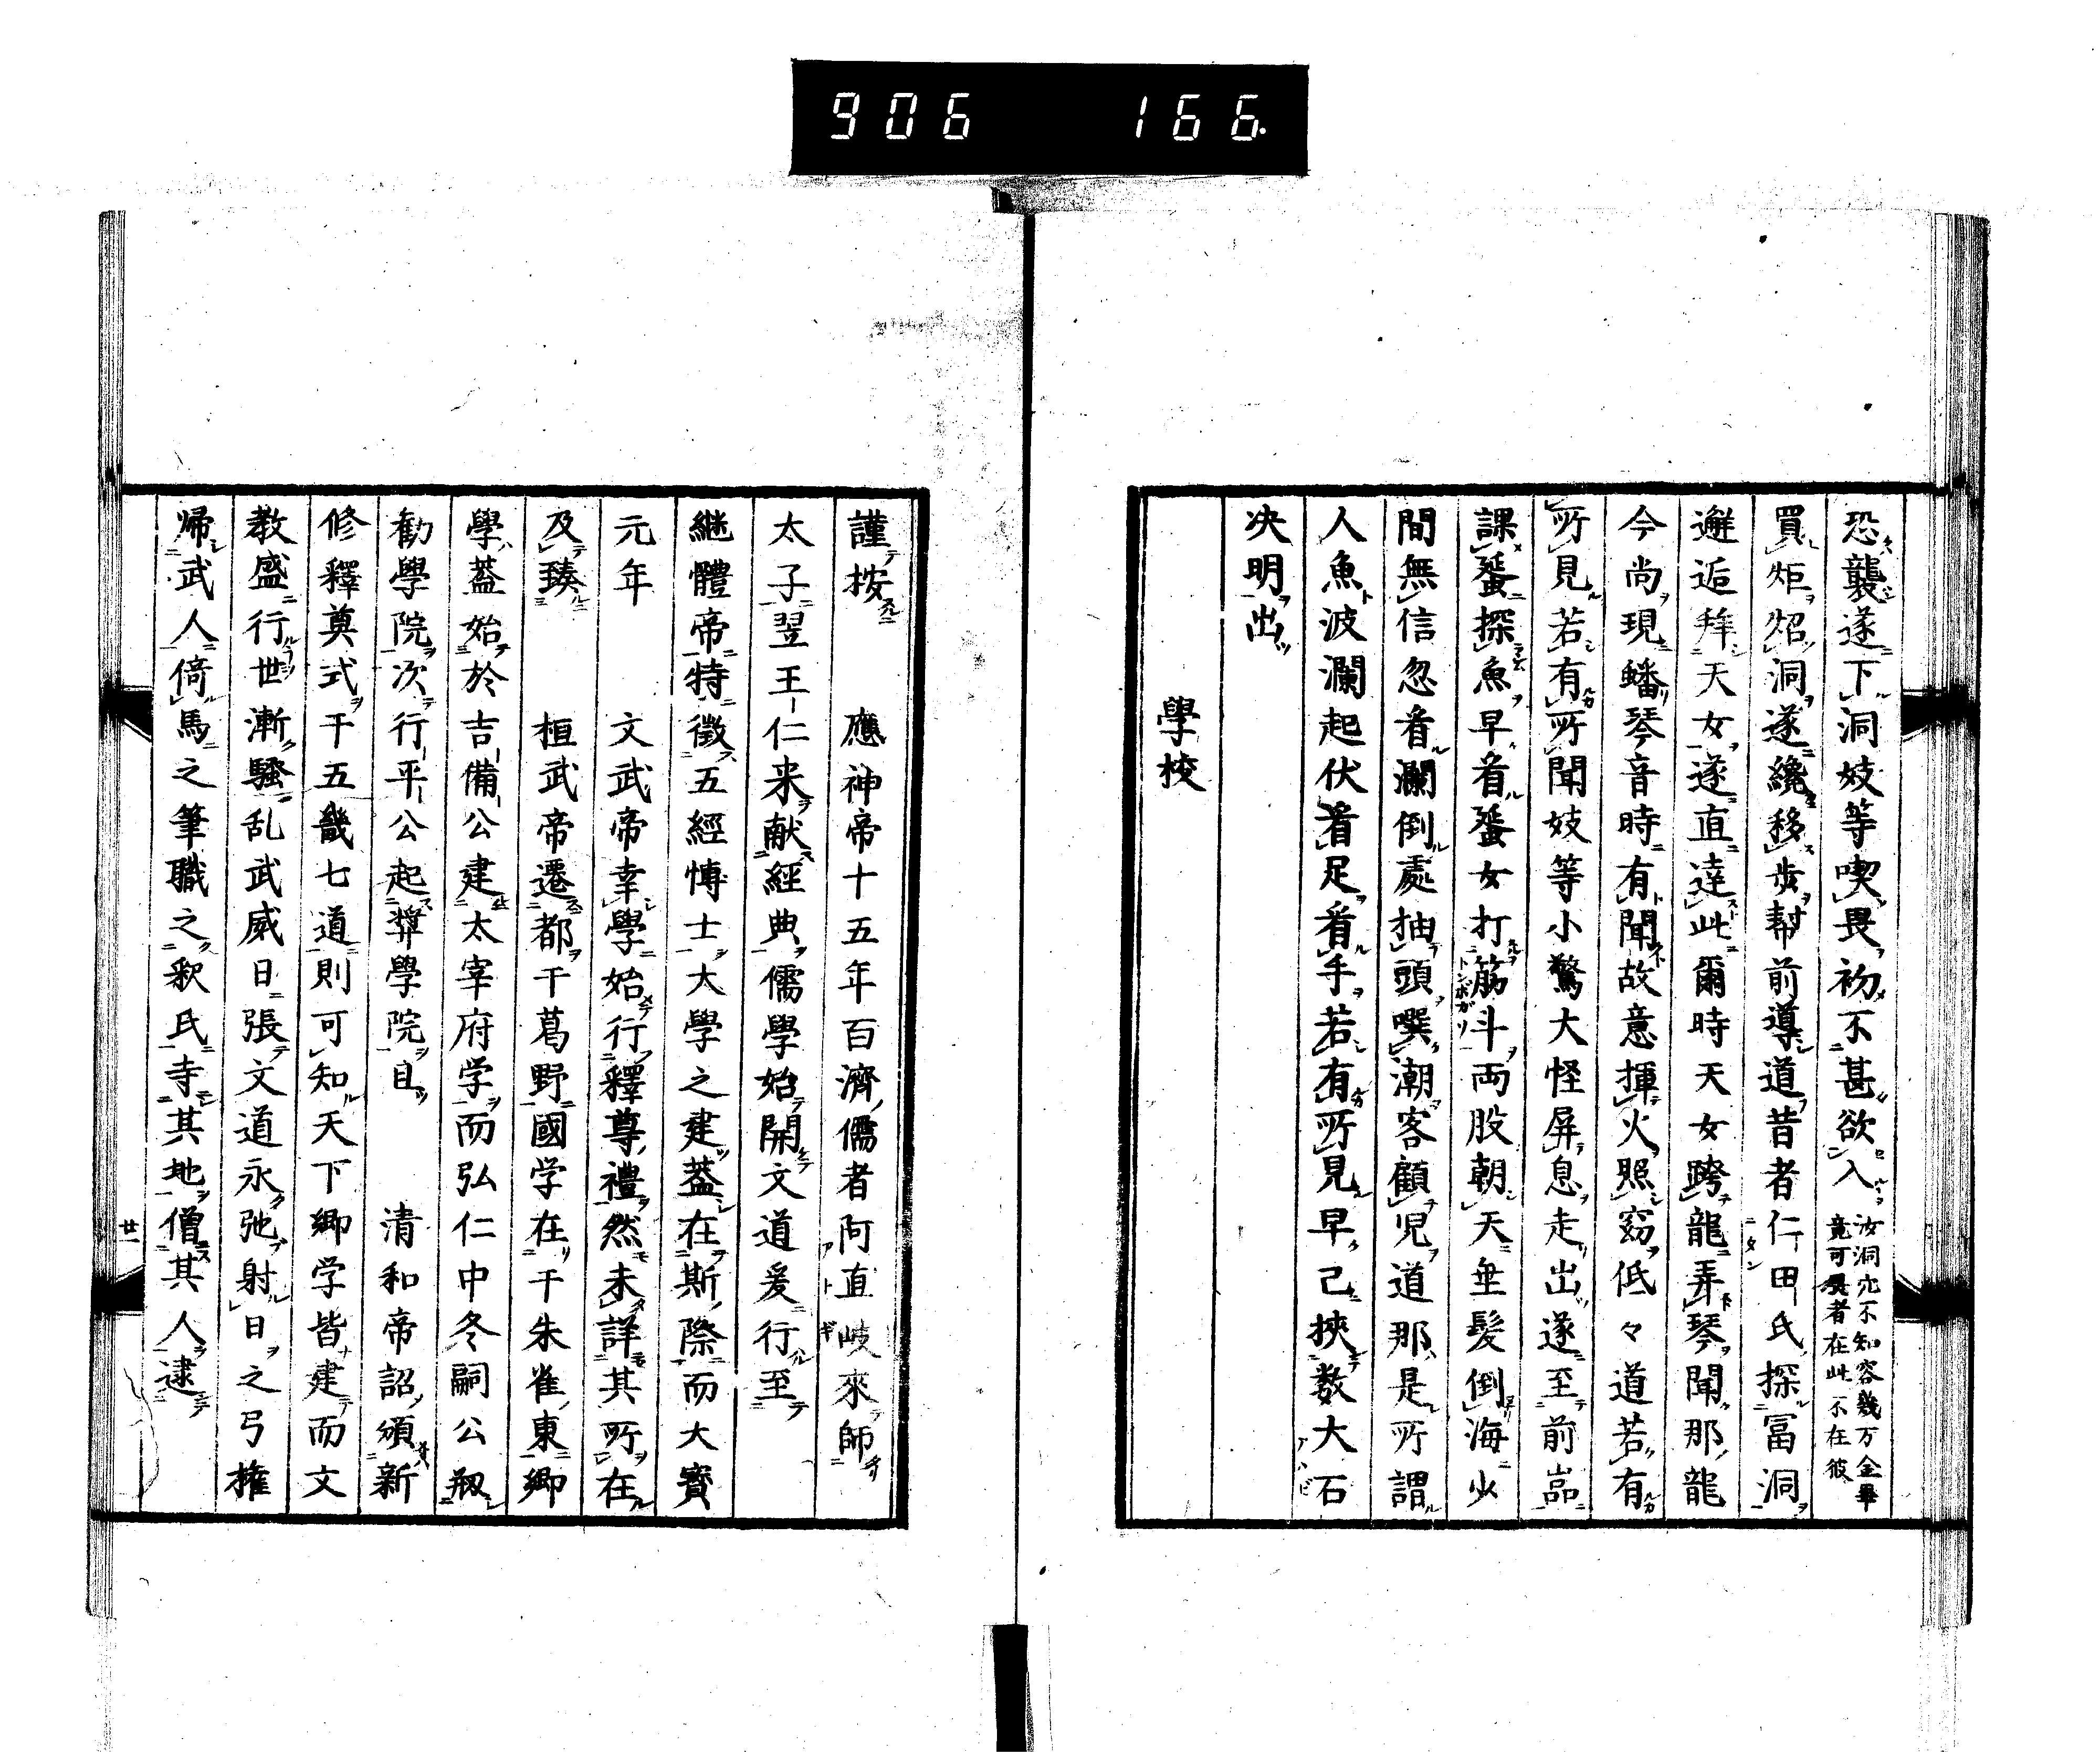 906 166.
恐襲遂下洞妓等喫畏初不甚欲入汝洞穴不知容幾万金畢
竟可畏者在此不在彼
買炬炤洞遂纔移步幇前導道昔者仁田氏探冨洞
邂逅拜天女遂直達此爾時天女跨龍弄琴聞那龍
今尚現蟠琴音時有聞故意揮火照窈低々道若有
所見若有所聞妓等小驚大怪屏息走出遂至前嵓
課蜑探魚早看蜑女打筋斗両股朝天垂髮倒海少
間無信忽看瀾倒處抽頭噀潮客顧児道那是所謂
人魚波瀾起伏看足看手若有所見早己挾数大石
决明出
學校
謹按 應神帝十五年百濟儒者阿直岐來師
太子翌王仁来献經典儒學始開文道爰行至
継體帝特徵五經博士大學之建葢在斯際而大寳
元年 文武帝幸學始行釋尊禮然未詳其所在
及臻 桓武帝遷都干葛野國学在干朱雀東卿
學葢始於吉備公建太宰府学而弘仁中冬嗣公剏
勧學院次行平公起奨學院且 清和帝詔頒新
修釋奠式干五畿七道則可知天下郷学皆建而文
教盛行世漸騷乱武威日張文道永弛射日之弓権
帰武人倚馬之筆職之釈氏寺其地僧其人逮
廿